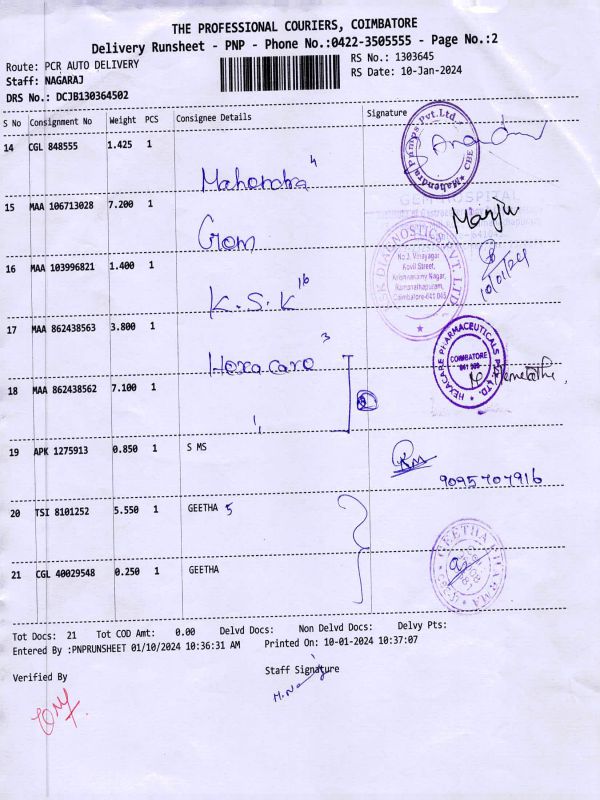 THE PROFESSIONAL COURIERS, COIMBATORE
Delivery Runsheet - PNP - Phone No.:0422-3505555 - Page No.:2
Route: PCR AUTO DELIVERY
RS No.: 1303645
Staff: NAGARAJ
RS Date: 10-Jan-2024
DRS No.: DCJB130364502
S No Consignment No Weight PCS Consignee Details Signature
14 CGL 848555 1.425 1
Mahendra 4
Mahendra Pumps Pvt. Ltd. CBE
15 MAA 106713028 7.200 1
Gem
GEM HOSPITAL
Manju
16 MAA 103996821 1.400 1
K.S.K 16
KSK DIAGNOSTICS PVT. LTD.
No 3, Vinayagar
Kovil Street,
Krishnasamy Nagar,
Ramanathapuram,
Coimbatore-641 045
10/01/24
17 MAA 862438563 3.800 1
Hexacare 3
HEXACARE PHARMACEUTICALS PVT. LTD.
COIMBATORE
18 MAA 862438562 7.100 1
19 APK 1275913 0.850 1 S MS
9095707916
20 TSI 8101252 5.550 1 GEETHA 5
21 CGL 40029548 0.250 1 GEETHA
GEETHA PHARMA
Tot Docs: 21 Tot COD Amt: 0.00 Delvd Docs: Non Delvd Docs: Delvy Pts:
Entered By :PNPRUNSHEET 01/10/2024 10:36:31 AM Printed On: 10-01-2024 10:37:07
Verified By
Staff Signature